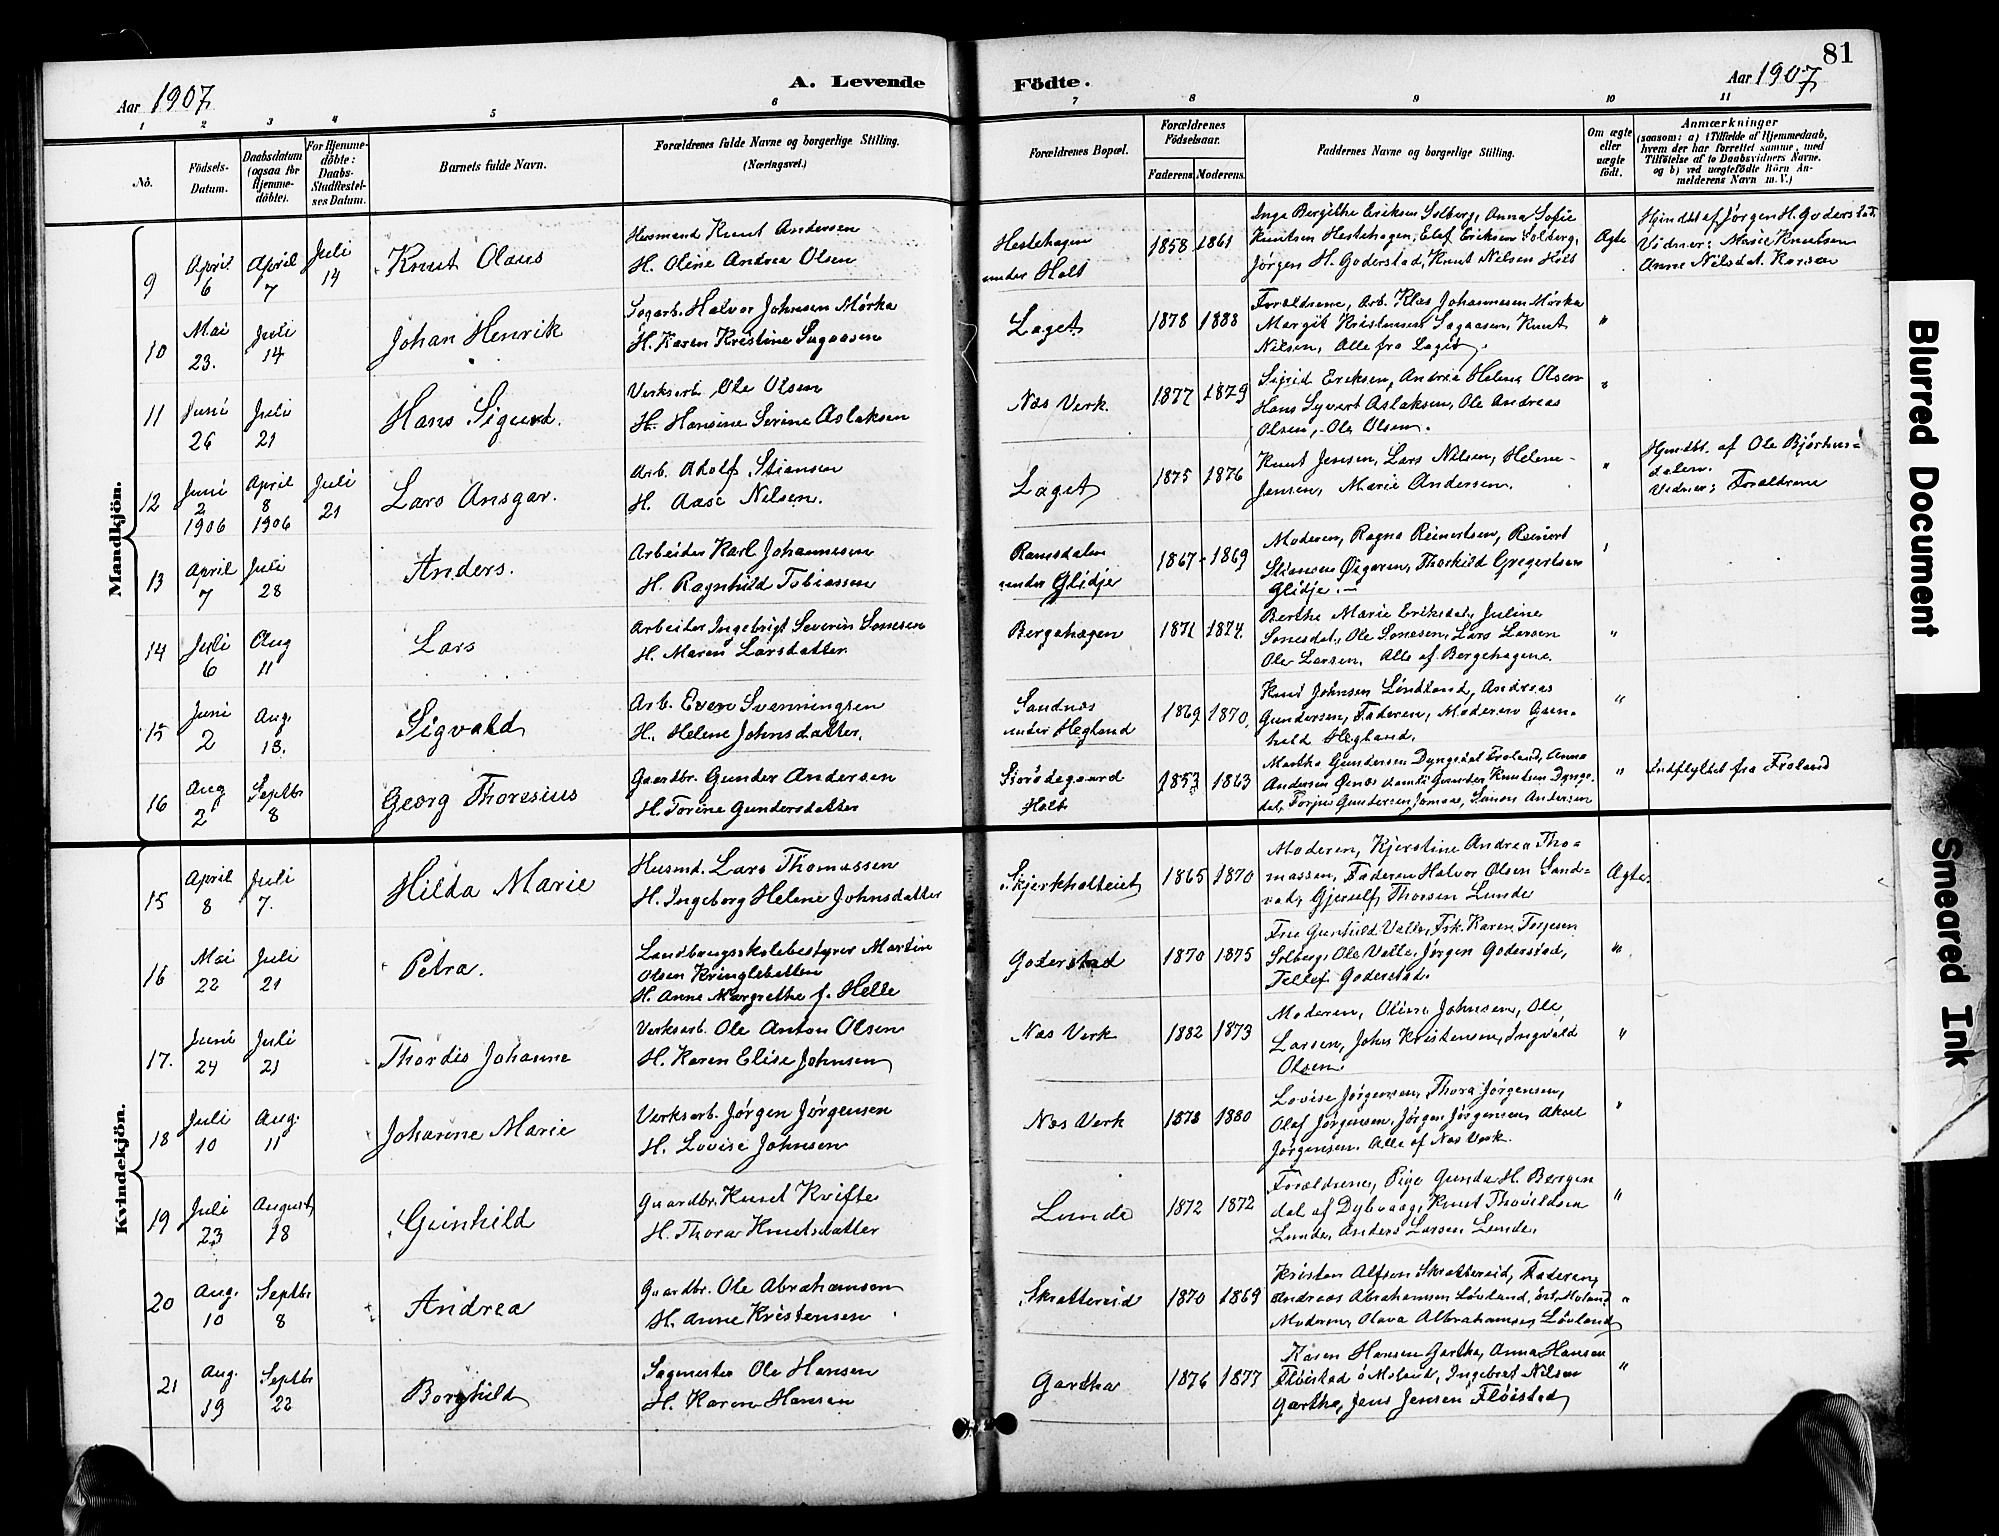 81
Aar 1907
A. Levende
Födte.
Aar 1907
1 2 3 4 5 6 7 8 9 10 11
No.
Födsels-
Datum.
Daabsdatum
(ogsaa for
Hjemme-
döbte).
For Hjemme-
döbte:
Daabs-
Stadfæstel-
ses Datum.
Barnets fulde Navn.
Forældrenes fulde Navne og borgerlige Stilling.
(Næringsvei.)
Forældrenes Bopæl.
Forældrenes
Födselsaar.
Faderens. Moderens.
Faddernes Navne og borgerlige Stilling.
Om ægte
eller
uægte
födt.
Anmærkninger
(saasom: a) i Tilfælde af Hjemmedaab,
hvem der har forrettet samme, med
Tilföielse af to Daabsvidners Navne.
og b) ved uægtefödte Börn An-
melderens Navn m. V.)
Mandkjön.
9
April
6
April
7
Juli
14
Knut Olaus
Husmand Knut Andersen
H. Oline Andrea Olsen
Hestehagen
under Holt
1858 1861
Inga Bergithe Eriksen Solberg, Anna Sofie
Knutsen Hestehagen, Elef Eriksen Solberg,
Jørgen H. Goderstad, Knut Nilsen Holt
Ægte
Hjmdbt af Jørgen H. Goderstad.
Vidner: Marie Knutsen
Anne Nilsdat.
10
Mai
23.
Juli
14
Johan Henrik
Sagarb. Halvor Johnsen Mørka
H. Karen Kristine Sagaasen
Laget
1878 1888
Forældrene, Arb. Klas Johannesen Mørka
Margit Kristensen Sagaasen, Knut
Nilsen, Alle fra Laget.
"
11
Juni
26
Juli
21
Hans Sigurd.
Verksarb. Ole Olsen
H. Hansine Serine Aslaksen
Næs Verk.
1877 1879
Sigrid Eriksen, Andrea Helene Olsen
Hans Syvert Aslaksen, Ole Andreas
Olsen, Ole Olsen.
"
12
Juni
2
1906
April
8
1906
Juli
21
Lars Ansgar.
Arb. Adolf Stiansen
H. Aase Nilsen.
Laget
1875 1876
Knut Jensen, Lars Nilsen, Helene
Jensen, Marie Andersen.
"
Hjmdbt. af Ole Bjørhus=
dalen.
Vidner: Forældrene
13
April
7
Juli
28
Anders.
Arbeider Karl Johannesen
H. Ragnhild Tobiassen
Ramsdalen
under Glidje
1867 1869
Moderen, Ragna Reinertsen, Reinert
Stiansen Øigaren, Thorkild Gregertsen
Glidje.
"
14
Juli
6
Aug
11
Lars
Arbeider Ingebrigt Severin Sønesen
H. Maren Larsdatter
Bergehagen
1871 1874.
Berthe Marie Eriksdat, Juline
Sønesdat., Ole Sønesen, Lars Larsen
Ole Larsen, Alle af Bergehagene.
"
15
Juni
2
Aug.
18.
Sigvald
Arb. Even Svenningsen
H. Helene Johnsdatter.
Sandnæs
under Hegland
1869 1870.
Knut Johnsen Lindland, Andreas
Gundersen, Faderen, Moderen Gun-
hild Hegland.
"
16
Aug
2
Septbr
8
Georg Thoresius
Gaardbr. Gunder Andersen
H. Torine Gundersdatter
Holt
1853 1863
Martha Gundersen Dyngedal Froland, Anna
Andersen Øinæs Gunder Knutsen Dynge-
dal, Torjus Gundersen Jomaas, Simon Andersen
"
Indflyttet fra Froland
Kvindekjön.
15
April
8
Juli
7.
Hilda Marie
Husmd. Lars Thomassen
H. Ingeborg Helene Johnsdatter
Skjerkholteiet
1865 1870
Moderen, Kjerstine Andrea Tho=
massen, Faderen Halvor Olsen Sand=
Thorsen Lunde
Ægte.
16
Mai
22
Juli
21
Petra.
Landbrugsskolebestyrer Martin
Olsen Kringlebotten
H. Anne Margrethe f. Helle
Goderstad
1870 1875
Frue Gunhild Valle, Frk. Karen Torjesen
Solberg, Ole Valle, Jørgen Goderstad,
Tellef Goderstad.
"
17.
Juni
24
Juli
21
Thordis Johanne
Verksarb. Ole Anton Olsen
H. Karen Elise Johnsen
Næs Verk
1882 1873
Moderen, Oline Johnsen, Ole
Larsen, John Kristensen, Ingvald
Olsen
"
18
Juli
10
Aug.
11
Johanne Marie
Verksarb. Jørgen Jørgensen
H. Lovise Johnsen
Næs Verk
1878 1880
Lovise Jørgensen, Thora Jørgensen,
Olaf Jørgensen, Jørgen Jørgensen, Aksel
Jørgensen. Alle af Næs Verk.
"
19
Juli
23
August
18
Gunhild
Gaardbr. Knut Kvifte
H. Thora Knutsdatter
Lunde
1872 1872
Forældrene, Pige Gunda H. Bergen
dal af Dybvaag, Knut Thovildsen
Lunde, Anders Larsen Lunde.
"
20
Aug.
10
Septbr
8
Andrea
Gaardbr. Ole Abrahamsen
H. Anne Kristensen
Skrattereid
1870 1869
Kristen Alfsen Skrattereid, Faderen,
Andreas Abrahamsen Løvland, øst. Moland
Moderen, Olava Albrahamsen, Løvland
"
21
Aug.
19
Septbr
22
Borghild
Sagmester Ole Hansen
H. Karen Hansen
Gartha
1876 1877
Karen Hansen Gartha, Anna Hansen
Fløistad ø Moland, Ingebret Nilsen
Gartha, Jens Jensen Fløistad
"
Blurred Document
Smeared Ink